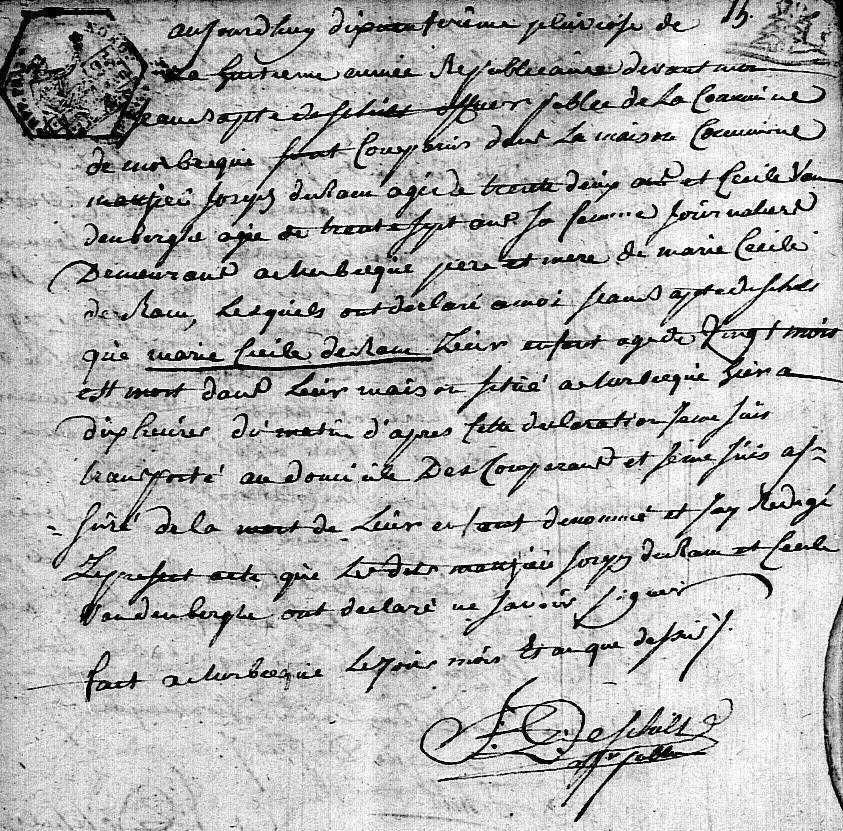 15.
aujourdhuy dixneuvième pluviose de
La huitieme année Republicaine devant moi
Jean Bapte deschildt officier public de La Commune
de morbecque sont Comparus dans La maison Commune
mathieu Joseph deRam agée de trente deux ans et Cecile Van
denberghe agée de trente sept ans sa femme Journaliers
Demeurans a Morbecque pere et mere de marie Cecile
de Ram, Lesquels ont declaré a moi Jean Bapte deschildt
que marie Cecile deRam Leur enfant agé de Vingt mois
est mort dans Leur maison situé a Morbecque hier a
dix heures du matin d'apres cette declaration je me suis
transporté au domicile Des Comparans et je me suis as=
=suré de la mort de Leur enfant denommé et J'ay Redigé
Le present acte que Les dits mathieu Joseph deRam et Cecile
Vandenberghe ont declaré ne savoir signer
fait a Morbecque Le jour mois et an que dessus
J: B: DeSchildt
offr public